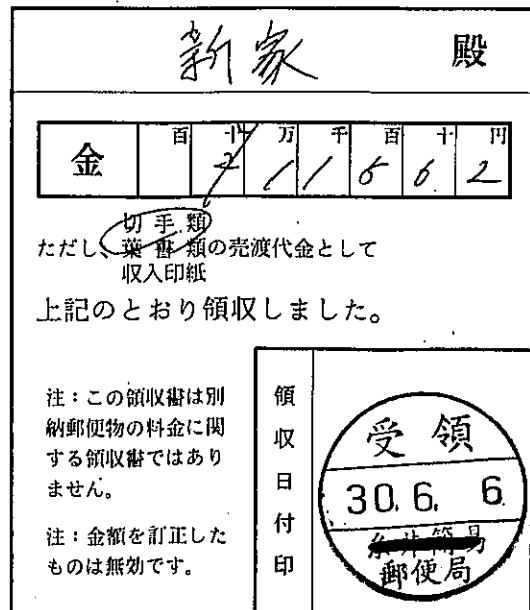 新家 殿
金 百 十 万 千 百 十 円
2 1 1 5 6 2
切手類
ただし、葉書類の売渡代金として
収入印紙
上記のとおり領収しました。
注：この領収書は別
納郵便物の料金に関
する領収書ではあり
ません。
注：金額を訂正した
ものは無効です。
領収日付印
受領
30.6.6
郵便局